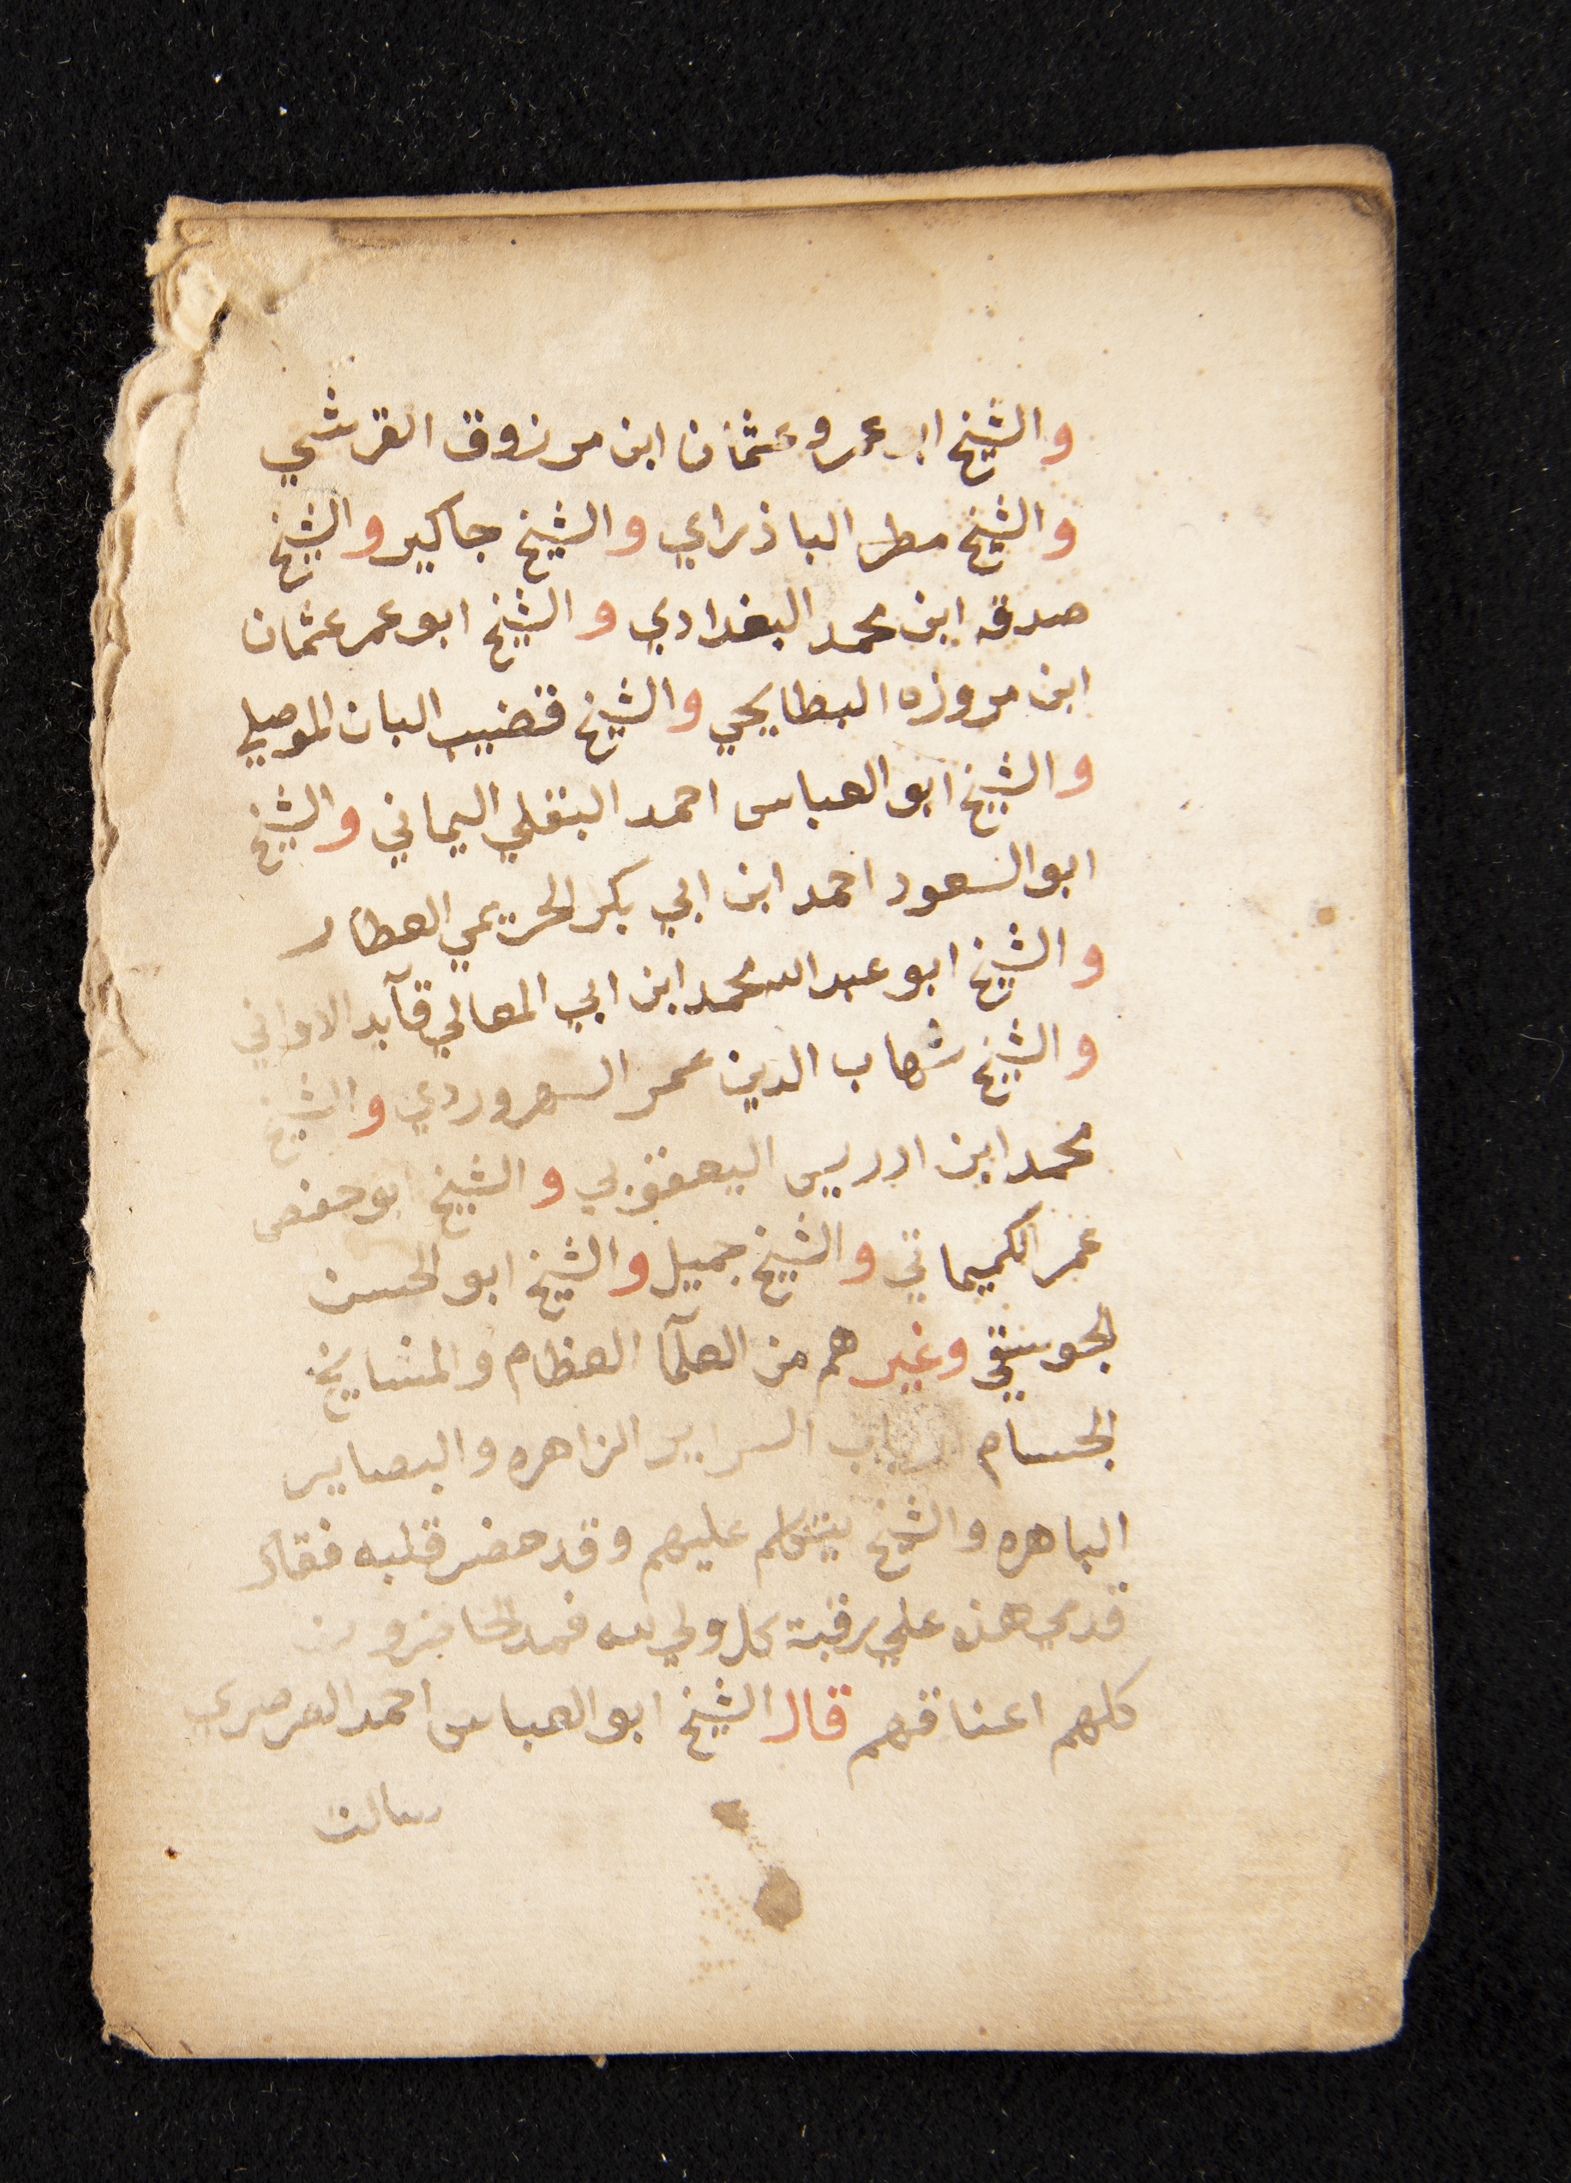 والشيخ ابو عمرو عثمان ابن مرزوق القرشي
والشيخ مطر الباذراي والشيخ جاكير والشيخ
صدقه ابن محمد البغدادي والشيخ ابو عمر عثمان
ابن مروزه البطايحي والشيخ قضيب البان الموصلي
والشيخ ابو العباس احمد البقلي اليماني والشيخ
ابو السعود احمد ابن ابي بكر الحريمي العطار
والشيخ ابو عبد الله محمد ابن ابي المعالي قآيد الاواني
والشيخ شهاب الدين عمر السهروردي والشيخ
محمد ابن ادريس اليعقوبي والشيخ ابو حفص
عمر الكميماتي والشيخ جميل والشيخ ابو الحسن
الجوسقي وغيرهم من العلمآ العظام والمشايخ
الجسام ارباب السراير الزاهره والبصاير
الباهره والشيخ يتكلم عليهم وقد حضر قلبه فقال
قدمي هذه علي رقبة كل ولي لله فمد الحاضرون
كلهم اعناقهم قال الشيخ ابو العباس احمد الصرصري
سالت